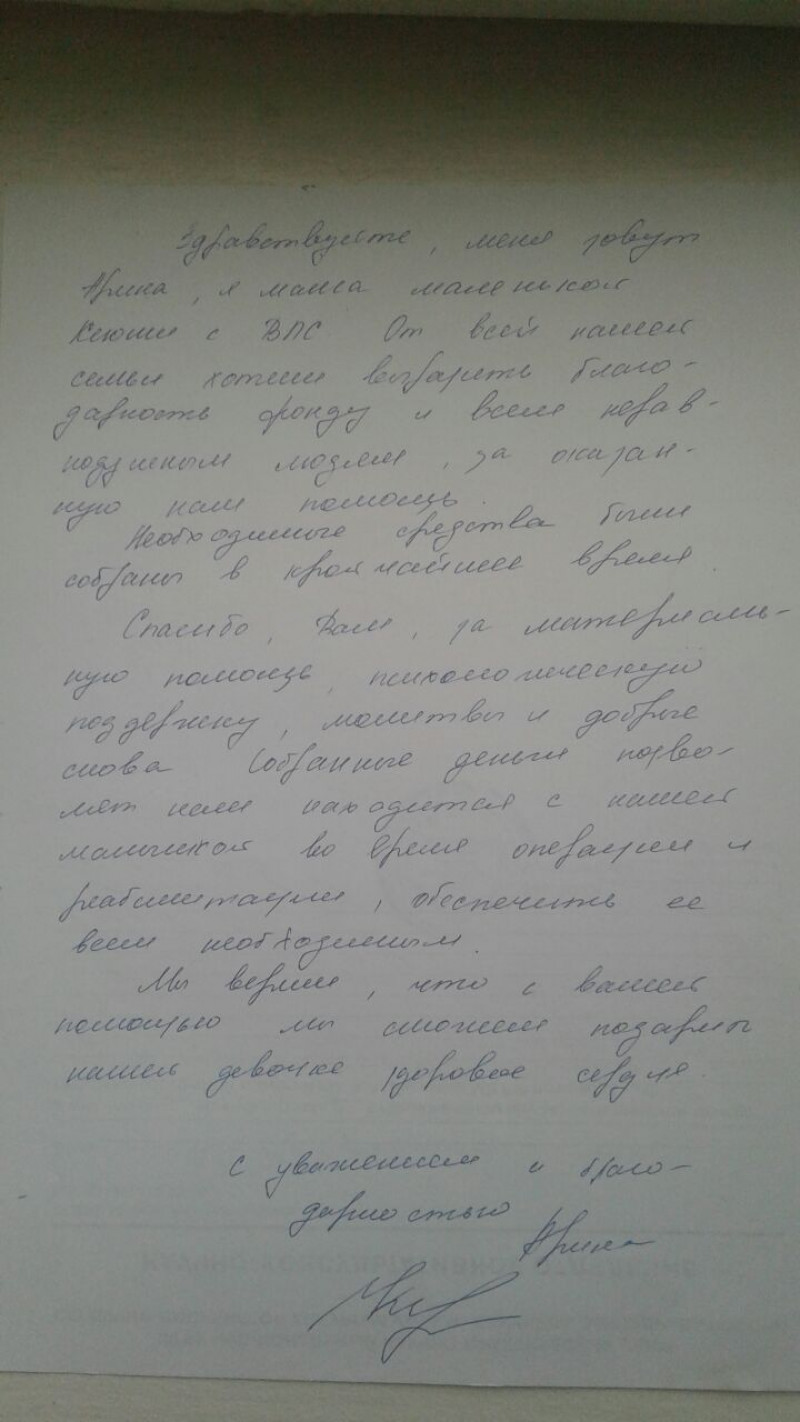 Здравствуйте, меня зовут
Арина, я мама маленькой
Ксюши с ВПС От всей нашей
семьи хотим выразить благо-
дарность фонду и всем нерав-
нодушным людям, за оказан-
ную нам помощь.
Необходимые средства были
собраны в кротчайшее время.
Спасибо, Вам, за материаль-
ную помощь, психологическую
поддержку, молитвы и добрые
слова Собранные деньги позво-
лят нам находится с нашей
малышкой во время операции и
реабилитации, обеспечить ее
всем необходимым.
Мы верим, что с вашей
помощью мы сможем подарить
нашей девочке здоровое сердце.
С уважением и благо-
дарностью
Арина